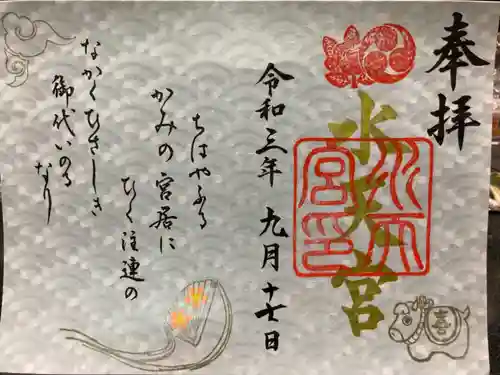 奉拝
水天宮
水天宮印
令和三年 九月十七日
ちはやふる
かみの宮居に
ひく注連の
なかくひさしき
御代いのる
なり
喜